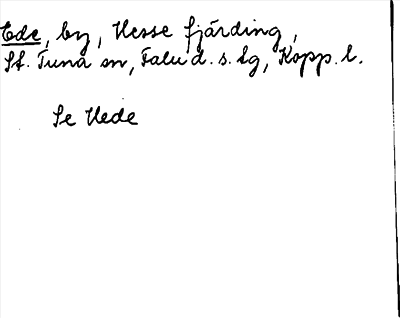 Ede, by, Hesse fjärding,
St. Tuna sn, Falu d. s. lg, Kopp. l.
Se Hede